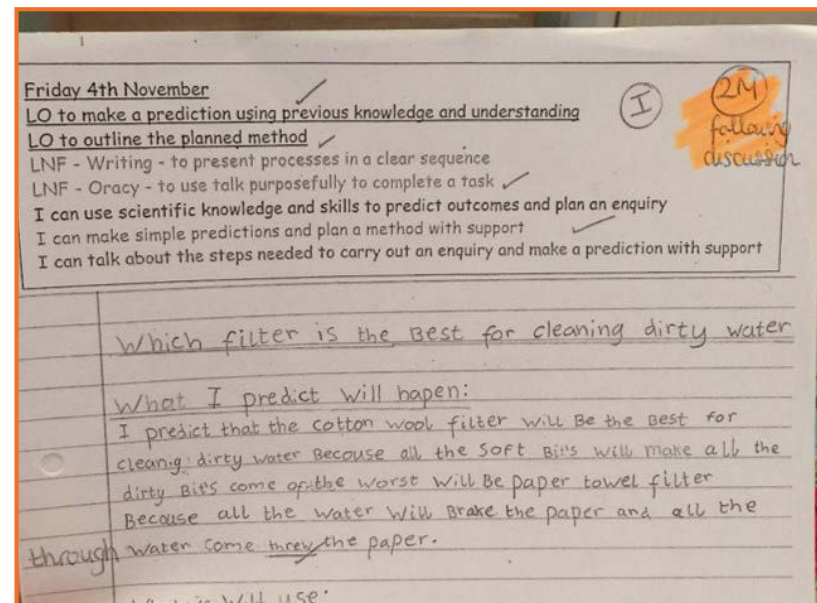 Friday 4th November
LO to make a prediction using previous knowledge and understanding
LO to outline the planned method
LNF - Writing - to present processes in a clear sequence
LNF - Oracy - to use talk purposefully to complete a task
I can use scientific knowledge and skills to predict outcomes and plan an enquiry
I can make simple predictions and plan a method with support
I can talk about the steps needed to carry out an enquiry and make a prediction with support
I
2M
following
discussion
Which filter is the Best for cleaning dirty water
What I predict will hapen:
I predict that the cotton wool filter will Be the Best for
cleanig dirty water Becouse all the Soft Bit's will make all the
dirty Bit's come of the worst will Be paper towel filter
Becouse all the water will Brake the paper and all the
through water come threw the paper.
will use: